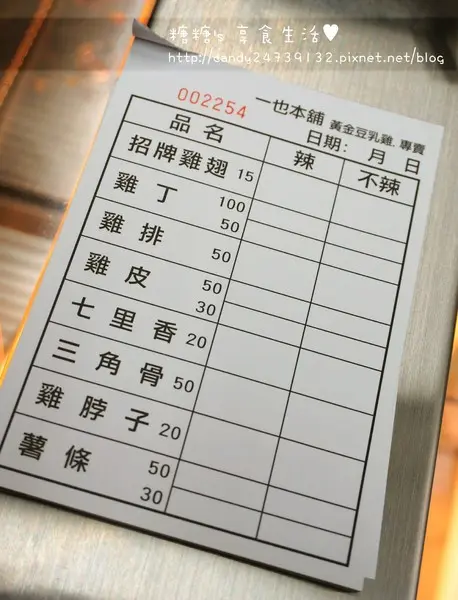 糖糖's 享食生活♥
http://candy24739132.pixnet.net/blog
002254 一也本舖 黃金豆乳雞 專賣
日期： 月 日
品名 辣 不辣
招牌雞翅 15
雞丁 100
50
雞排 50
雞皮 50
30
七里香 20
三角骨 50
雞脖子 20
薯條 50
30